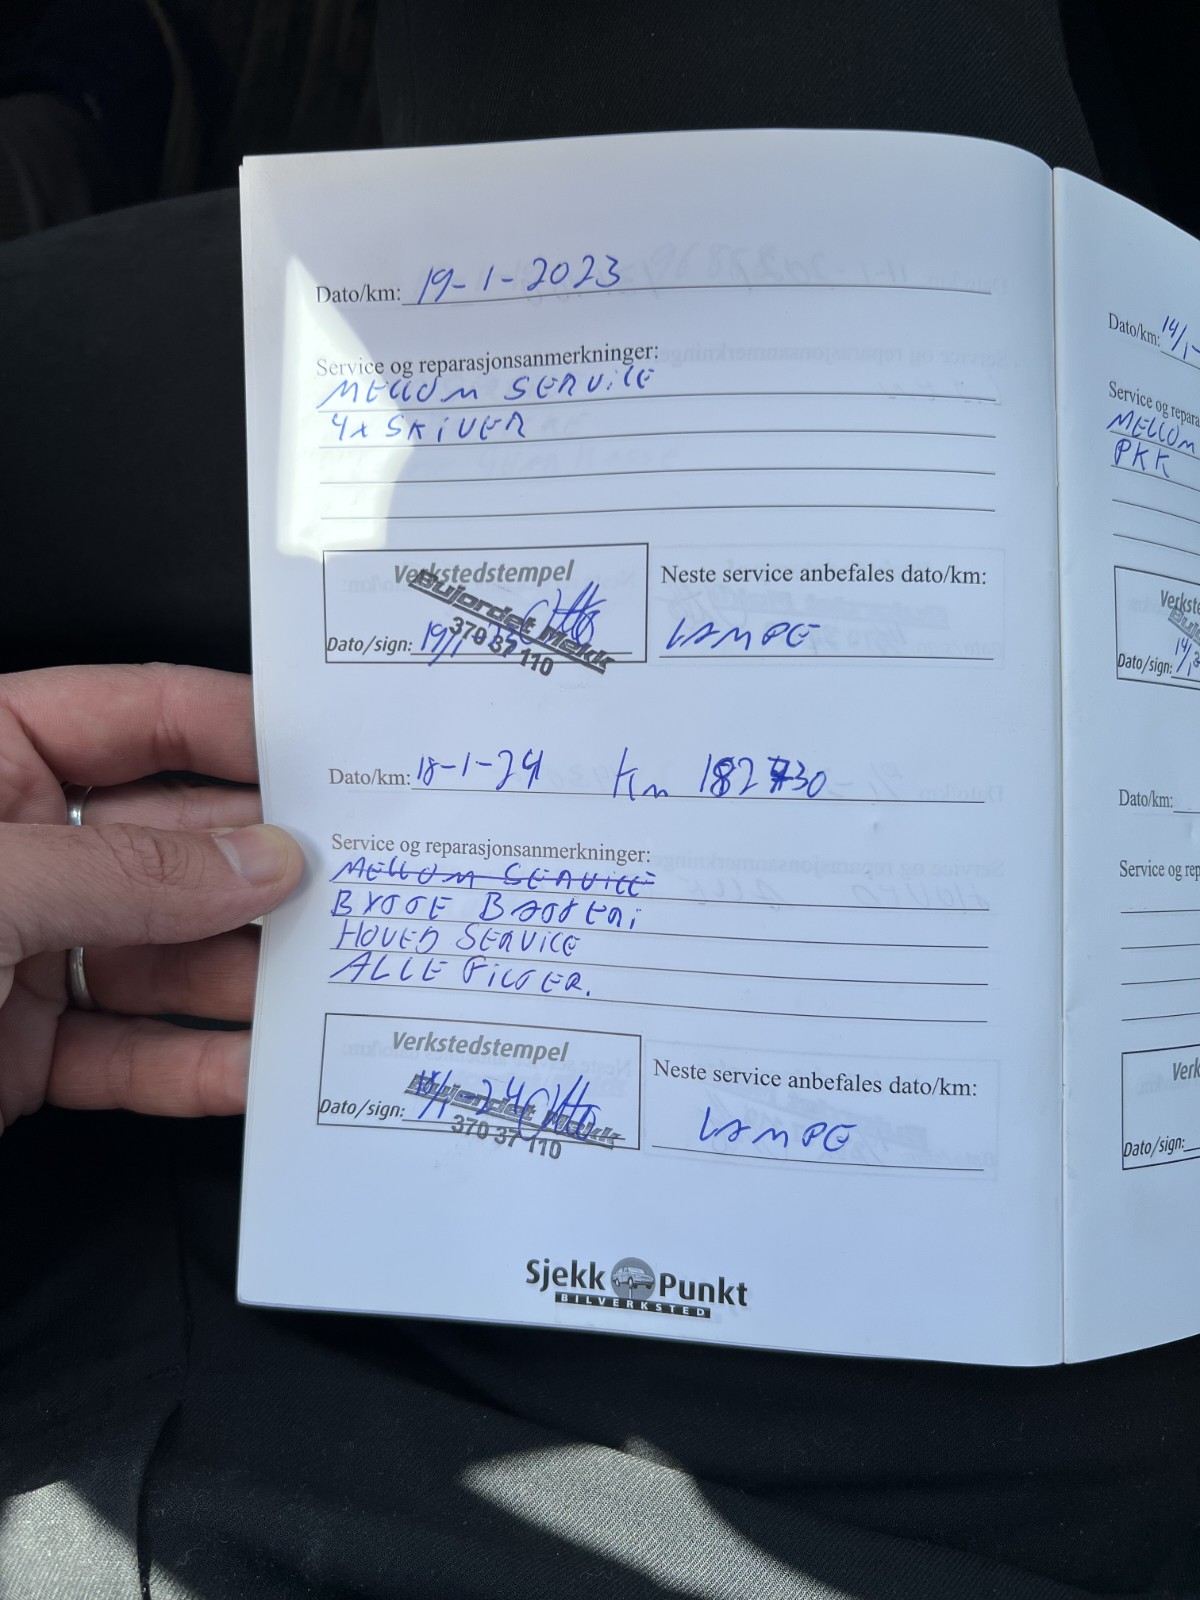 Dato/km: 19-1-2023
Service og reparasjonsanmerkninger:
MELLOM SERVICE
4x SKIVER
Verkstedstempel
Bujordet Mekk
370 37 110
Dato/sign: 19/1
Neste service anbefales dato/km:
LAMPE
Dato/km: 18-1-24 Km 182730
Service og reparasjonsanmerkninger:
MELLOM SERVICE
BYTTE BATTERI
HOVED SERVICE
ALLE FILTER.
Verkstedstempel
Bujordet Mekk
370 37 110
Dato/sign: 18/1-24
Neste service anbefales dato/km:
LAMPE
Sjekk Punkt
BILVERKSTED
Dato/km: 14/1-
Service og repara
MELLOM
PKK
Verkste
Buj
Dato/sign: 14/1
Dato/km:
Service og rep
Verk
Dato/sign: